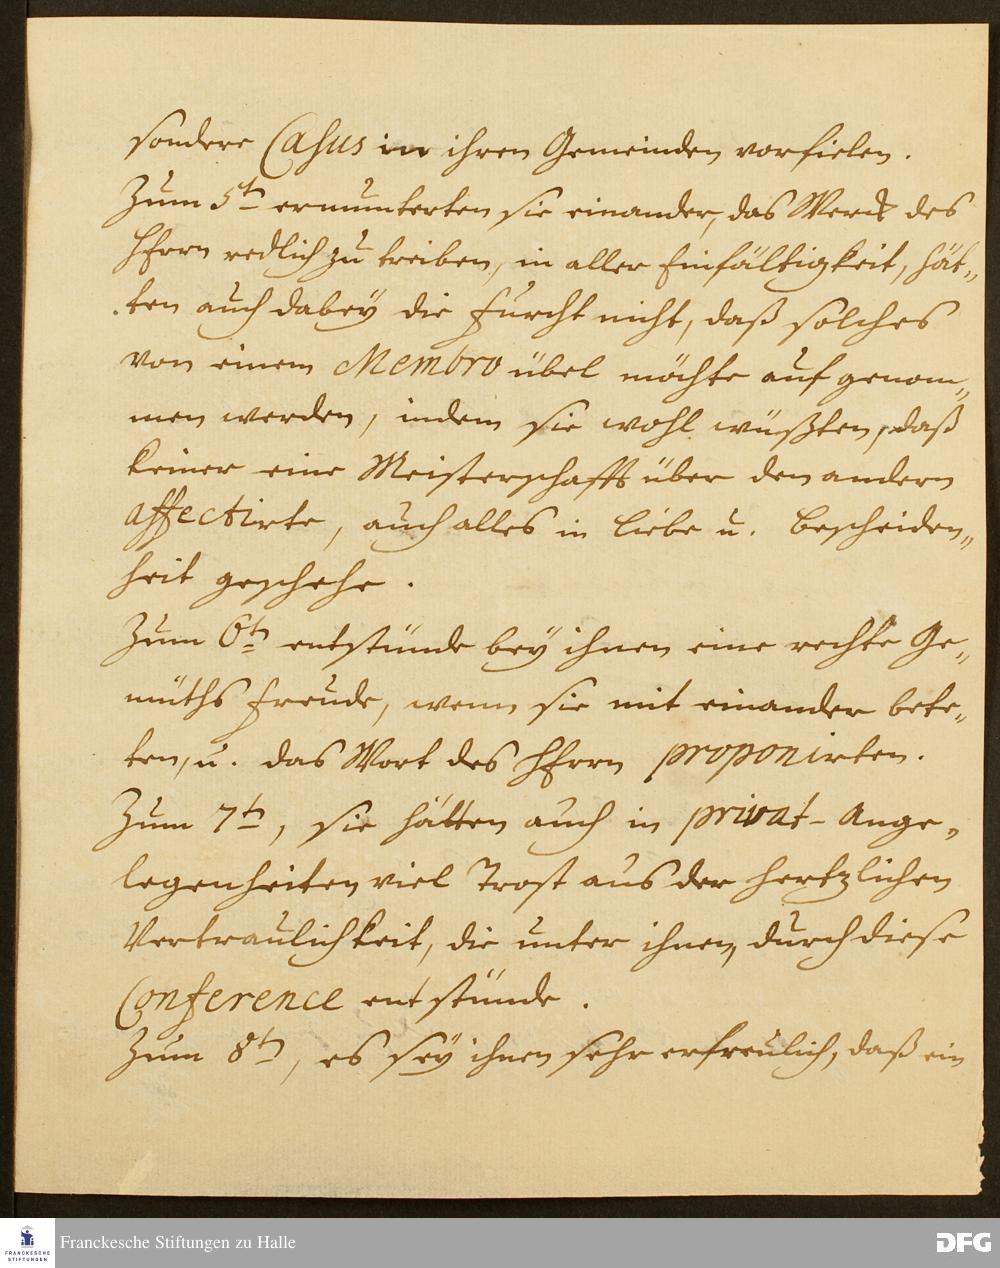 sondere Casus in ihren Gemeinden vorfielen.
Zum 5tn ermunterten sie einander, das Werck des
HErrn redlich zu treiben, in aller Einfältigkeit, hät„
ten auch dabeÿ die Furcht nicht, daß solches
von einem Membro übel möchte auf genom„
men werden, indem sie wohl wüßten, daß
keiner eine Meisterschafft über den andern
affectirte, auch alles in Liebe u. Bescheiden„
heit geschehe.
Zum 6tn entstünde beÿ ihnen eine rechte Ge„
müths Freude, wenn sie mit einander bete„
ten, u. das Wort des HErrn proponirten.
Zum 7tn, sie hätten auch in privat- Ange„
legenheiten viel Trost aus der hertzlichen
Vertraulichkeit, die unter ihnen, durch diese
Conference entstünde.
Zum 8tn, es seÿ ihnen sehr erfreulich, daß ein
FRANCKESCHE
STIFTUNGEN
Franckesche Stiftungen zu Halle
DFG